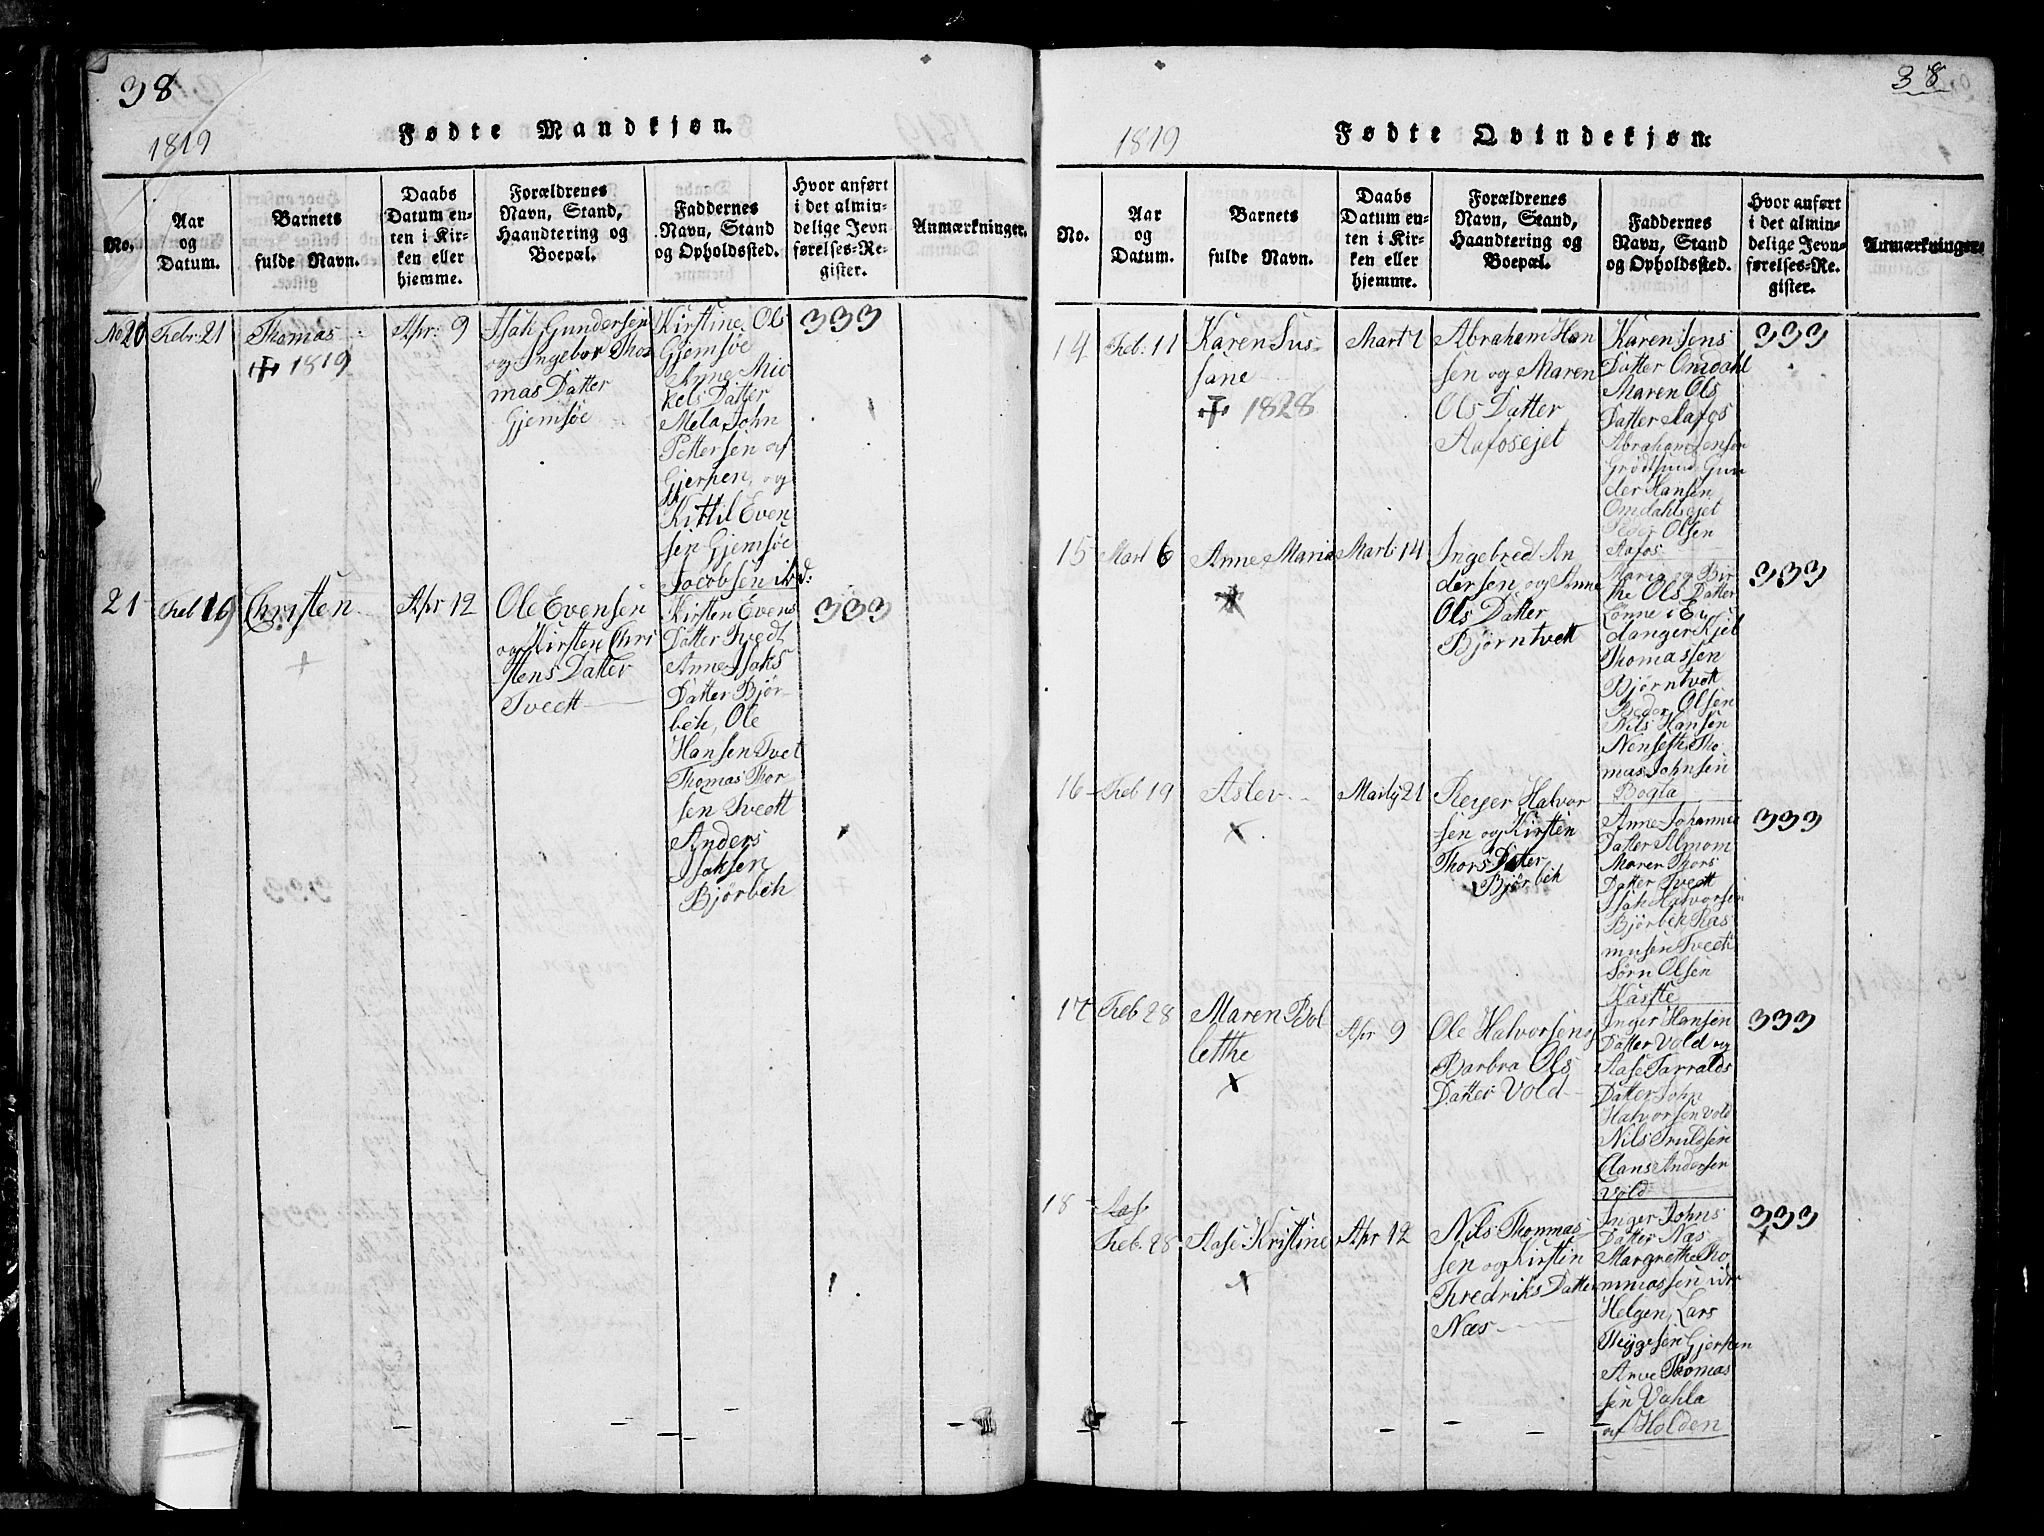 38
1819
Fødte Mandkjøn.
No.
Aar
og
Datum.
Barnets
fulde Navn.
Daabs
Datum en-
ten i Kir-
ken eller
hjemme.
Forældrenes
Navn, Stand,
Haandtering og
Boepæl.
Faddernes
Navn, Stand
og Opholdssted.
Hvor anført
i det almin-
delige Jevn
førelses-Re-
gister.
Anmærkninger.
No 20
Febr: 21
Thomas
1819
Apr: 9
Isak Gundersen
og Ingebor Tho
mas Datter
Gjemsøe
Kirstine Ols
Gjemsøe
Anne Mic
kels Datter
Mela John
Pettersen af
Gjerpen, og
Kittil Even
sen Gjemsøe
Jacobsen ibd:
333
21
Feb 19
Christen
Apr 12
Ole Evensen
og Kirsten Chri
stens Datter
Tvedt
Kirsten Evens
Datter Tvedt
Anne Isaks
Datter Bjør-
bek, Ole
Hansen Tvet
Thomas Thor
sen Tvedt
Anders
Isaksen
Bjørbek
333
38
1819
Fødte Qvindekjøn:
No.
Aar
og
Datum.
Barnets
fulde Navn.
Daabs
Datum en-
ten i Kir-
ken eller
hjemme.
Forældrenes
Navn, Stand,
Haandtering og
Boepæl.
Faddernes
Navn, Stand
og Opholdssted.
Hvor anført
i det almin-
delige Jevn-
førelses-Re.
gister.
Anmærkninger.
14
Feb: 11
Karen Sus-
sane
1828
Mart 7
Abraham Han
sen og Maren
Ols Datter
Aafosejet
Karen Jens
Datter Omdahl
Maren Ols
Datter Aafos
Abraham Jensen
Grødsund Gun
der Hansen
Omdahlsejet
Peder Olsen
Aafos
333
15
Mart 6
Anne Maria
Mart: 14
Ingebred An
dersen og Anne
Ols Datter
Bjørntvett
Maria og Bir
the Ols Datter
Lønne i Ei
danger Kjel
Thomassen
Bjørntvett
Peder Olsen
Nils Hansen
Nenseth Tho
mas Johnsen
Bogla
333
16
Feb 19
Aslev
Martj 21
Reyer Halvor
sen og Kirsten
Thors Datter
Bjørbek
Anne Johannes
Datter Almom
Maren Thors
Datter Tvedt
Isak Halvorsen
Bjørbek Ras
musen Tvedt
Sørn Olsen
Kaste
333
17
Feb 28
Maren Bol
lethe
Apr 9
Ole Halvorsen og
Barbra Ols
Datter Vold
Inger Hansen
Datter Vold og
Aase Tarralds
Datter John
Halvorsen Vold
Nils Truldsen
Clans Andersen
Vold
333
18
Feb. 28
Aase Kristine
Apr 12
Nils Thommas
sen og Kirsten
Fredriks Datter
Næs
Inger Johns
Datter Næs
Margrethe Tho
mmassen idr
Helgen, Lars
Heggesen Gjerpen
Anve Thomas
sen Vahla
af Holden
333